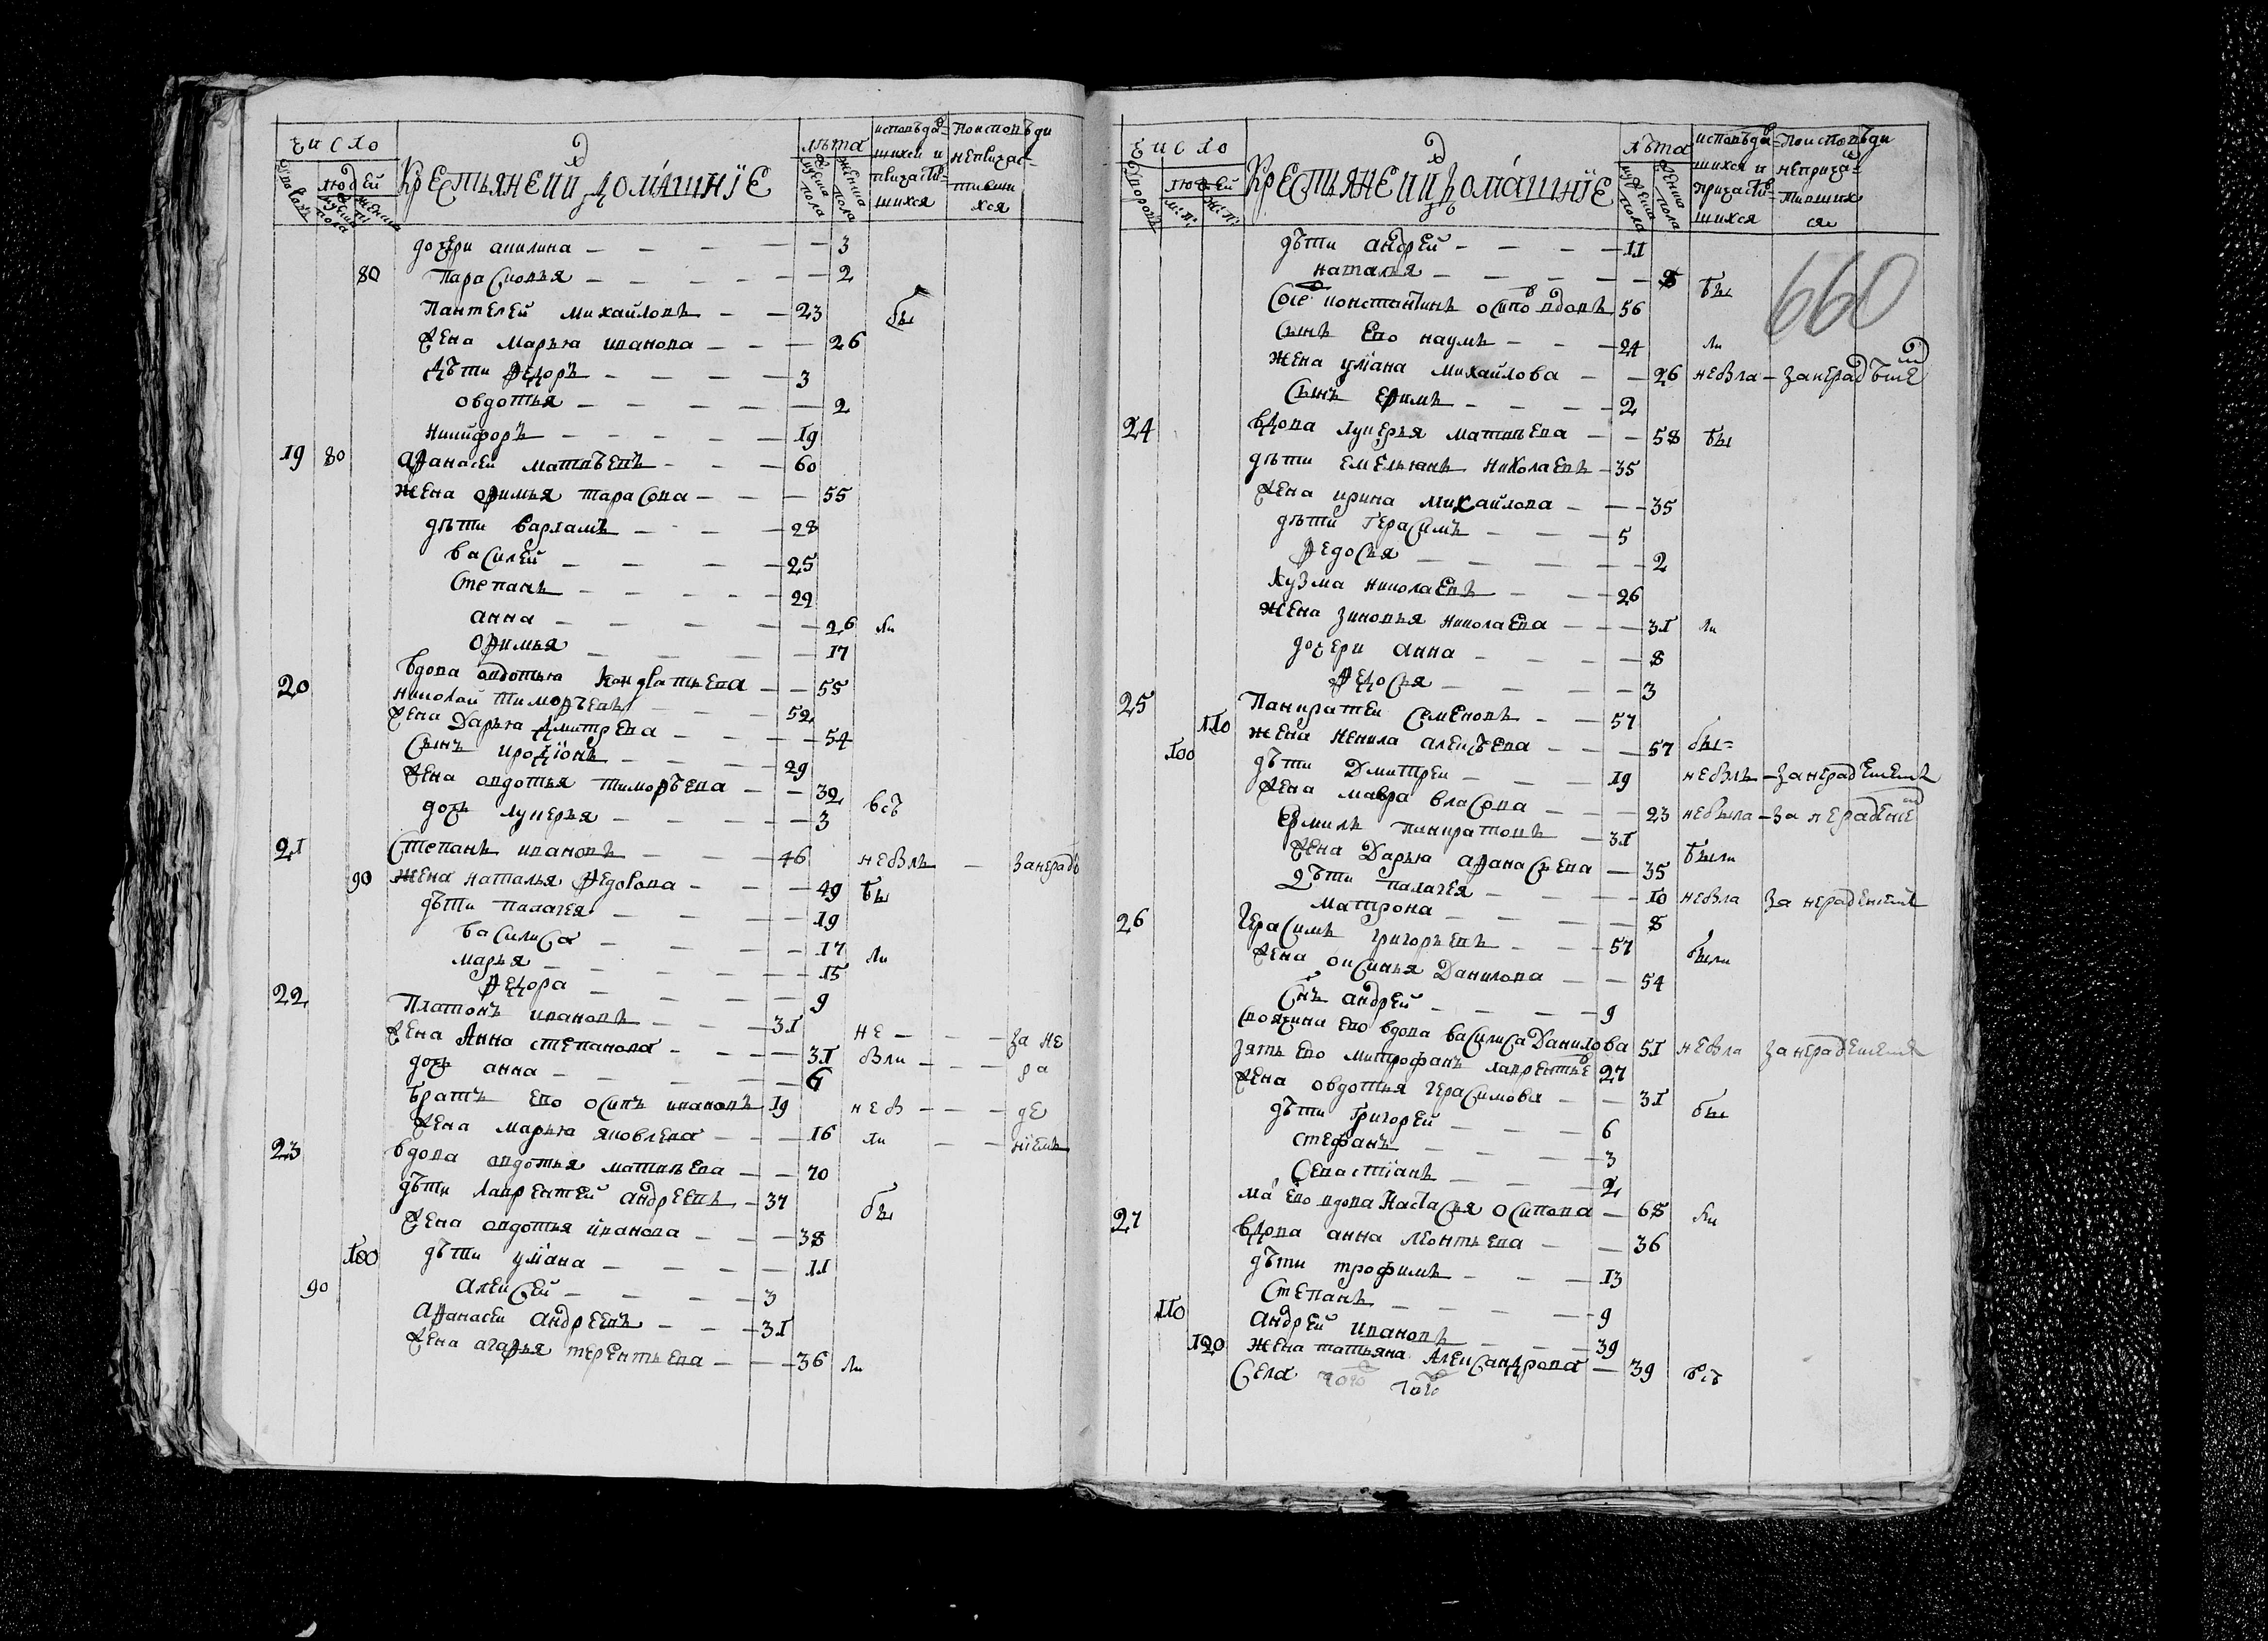 число
дворовъ
людей
мужеска пола
женска пола
крестьяне и ихъ домашнїе
лѣта
мужеска пола
женска пола
исповѣдавшихся и причастившихся
по исповѣди не причастившихся
дочери акилина — 3
80 парасковья — 2
Пантелей михайловъ — 23 бы
жена марья иванова — 26
дѣти Ѳедоръ — 3
овдотья — 2
никифоръ — 19
19 80 аѲанасеи матвѣевъ — 60
жена оѲимья тарасова — 55
дѣти варламъ — 28
василей — 25
степанъ — 22
анна — 26 ли
оѲимья — 17
20 вдова авдотья кондратьева — 55
николай тимоѲѣевъ — 52
жена Дарья дмитрева — 54
сынъ иродїонъ — 29
жена овдотья тимоѲѣева — 32 всѣ
дочь лукерья — 3
21 Степанъ ивановъ — 46 небылъ — занерадѣ
90 жена наталья Ѳедорова — 49 бы
дѣти палагея — 19
василиса — 17 ли
марья — 15
Ѳедора — 9
22 Платонъ ивановъ — 31 не — за не
жена Анна степанова — 31 были — ра
дочь анна — 6
братъ ево осипъ ивановъ 19 небы — де
жена марья яковлева — 16 ли — нїемъ
23 вдова овдотья матвѣева — 70
дѣти лаврентей андреевъ — 37 бы
жена овдотья иванова — 38
100 дѣти улїана — 11
90 алексей — 3
аѲанасеи андреевъ — 31
жена агаѲья терентьева — 36 ли
число
дворовъ
людей
м: п:
ж: п:
крестьяне и ихъ домашнїе
лѣта
мужеска пола
женска пола
исповѣдавшихся и причастившихся
по исповѣди не причастившихся
660
дѣти андрей — 11
наталья — 8 бы
константинъ осиповъ вдовъ 56
сынъ ево наумъ — 24 ли
жена улїана михайлова — 26 небыла — занерадѣнїе
сынъ еѲимъ — 2
24 вдова лукерья матвѣева — 58 бы
дѣти емельянъ николаевъ — 35
жена ирина михайлова — 35
дѣти герасимъ — 5
Ѳедосья — 2
кузма николаевъ — 26
жена зиновья николаева — 31 ли
дочери анна — 8
Ѳедосья — 3
25 Панкратей семеновъ — 57
110 жена ненила алексѣева — 57 бы
100 дѣти дмитреи — 19 небылъ — занерадениемъ
жена мавра власова — 23 небыла — за нерадение
ермилъ панкратовъ — 31 были
жена Дарья аѲанасьева — 35
дѣти палагея — 10 небыла за нерадениемъ
матрона — 8
26 герасимъ григорьевъ — 57 были
жена оксинья Данилова — 54
снъ андрей — 9
свояхина ево вдова василиса Данилова 51 небыла занерадениемъ
зять ево митрофанъ лаврентьев 27
жена овдотья герасимова — 31 бы
дѣти григорей — 6
стефанъ — 3
севастїанъ — 2
ма ево вдова настасья осипова — 68 ли
27 вдова анна леонтьева — 36
дѣти трофимъ — 13
степанъ — 9
110 андрей ивановъ — 39
120 жена татьяна александрова — 39 всѣ
села